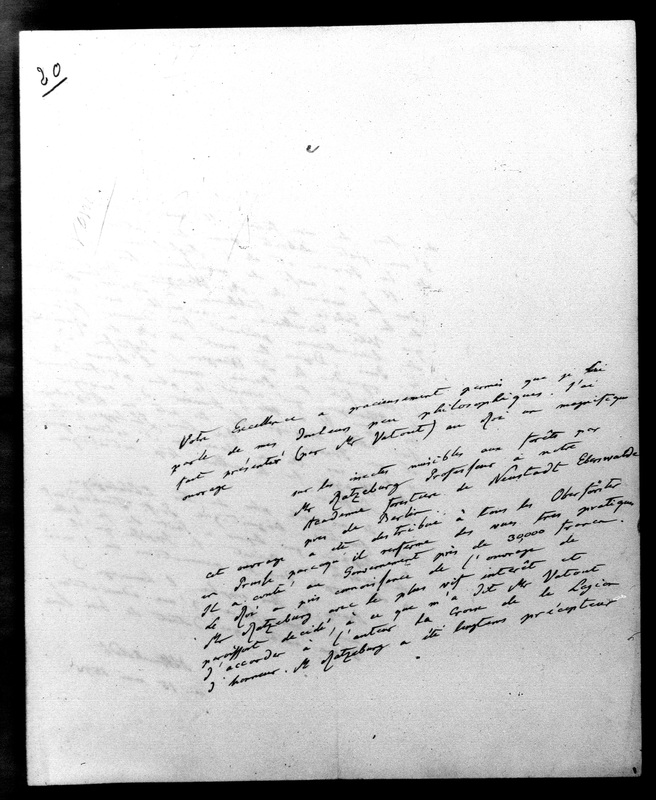 20
Votre Excellence a gracieusement permis que je lui
parle de mes douleurs peu philosophiques. J'ai
fait présenter (par Mr Vatout) au Roi un magnifique
ouvrage
sur les insectes nuisibles aux forêts par
Mr Ratzeburg Professeur à notre
Academie forestiere de Neustadt Eberswalde
près de Berlin.
cet ouvrage a été distribué à tous les Oberförster
en Prusse parcequ'il renferme des vues tres pratiques
Il a couté au Gouvernement près de 30,000 francs.
le Roi a pris connoissance de l'ouvrage de
Mr Ratzeburg avec le plus vif interêt et
paroissoit decidé, à ce que m'a dit Mr Vatout
d'accorder à l'auteur la Croix de la Legion
d'honneur. Mr Ratzeburg a été longtems précepteur